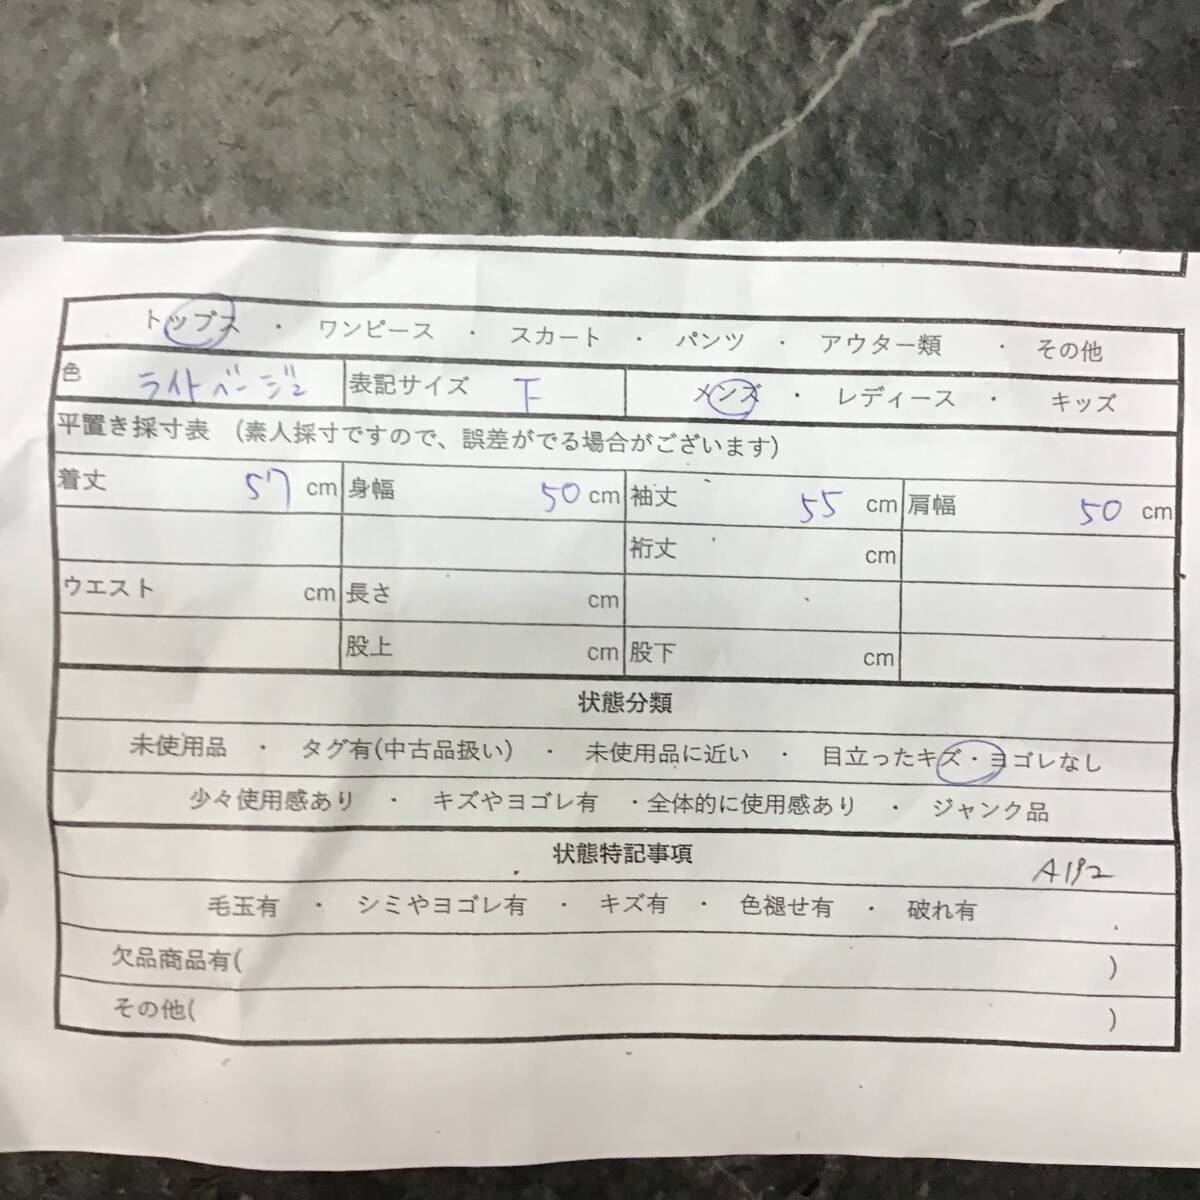 トップス ・ ワンピース ・ スカート ・ パンツ ・ アウター類 ・ その他
色 ライトベージュ 表記サイズ F メンズ ・ レディース ・ キッズ
平置き採寸表 (素人採寸ですので、誤差がでる場合がございます)
着丈 57 cm 身幅 50 cm 袖丈 55 cm 肩幅 50 cm
裄丈 cm
ウエスト cm 長さ cm
股上 cm 股下 cm
状態分類
未使用品 ・ タグ有(中古品扱い) ・ 未使用品に近い ・ 目立ったキズ・ヨゴレなし
少々使用感あり ・ キズやヨゴレ有 ・全体的に使用感あり ・ ジャンク品
状態特記事項 A192
毛玉有 ・ シミやヨゴレ有 ・ キズ有 ・ 色褪せ有 ・ 破れ有
欠品商品有( )
その他( )